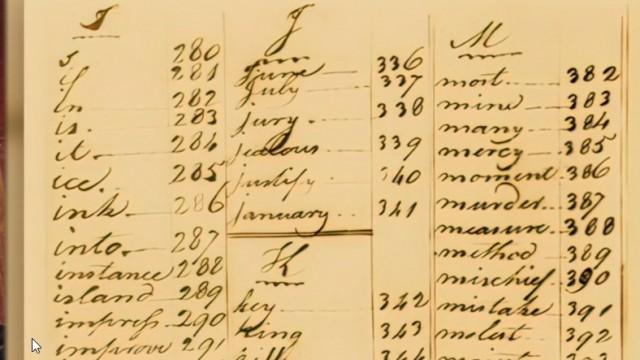 I
s 280
if 281
in 282
is. 283
it. 284
ice. 285
ink. 286
into. 287
instance 288
island 289
impress. 290
improve 291
J
June 336
July 337
jury. 338
jealous 339
justify 340
january.. 341
K
key 342
King 343
344
M
most. 382
mine 383
many 384
mercy. 385
moment 386
murder.. 387
measure. 388
method 389
mischief. 390
mistake 391
molest. 392